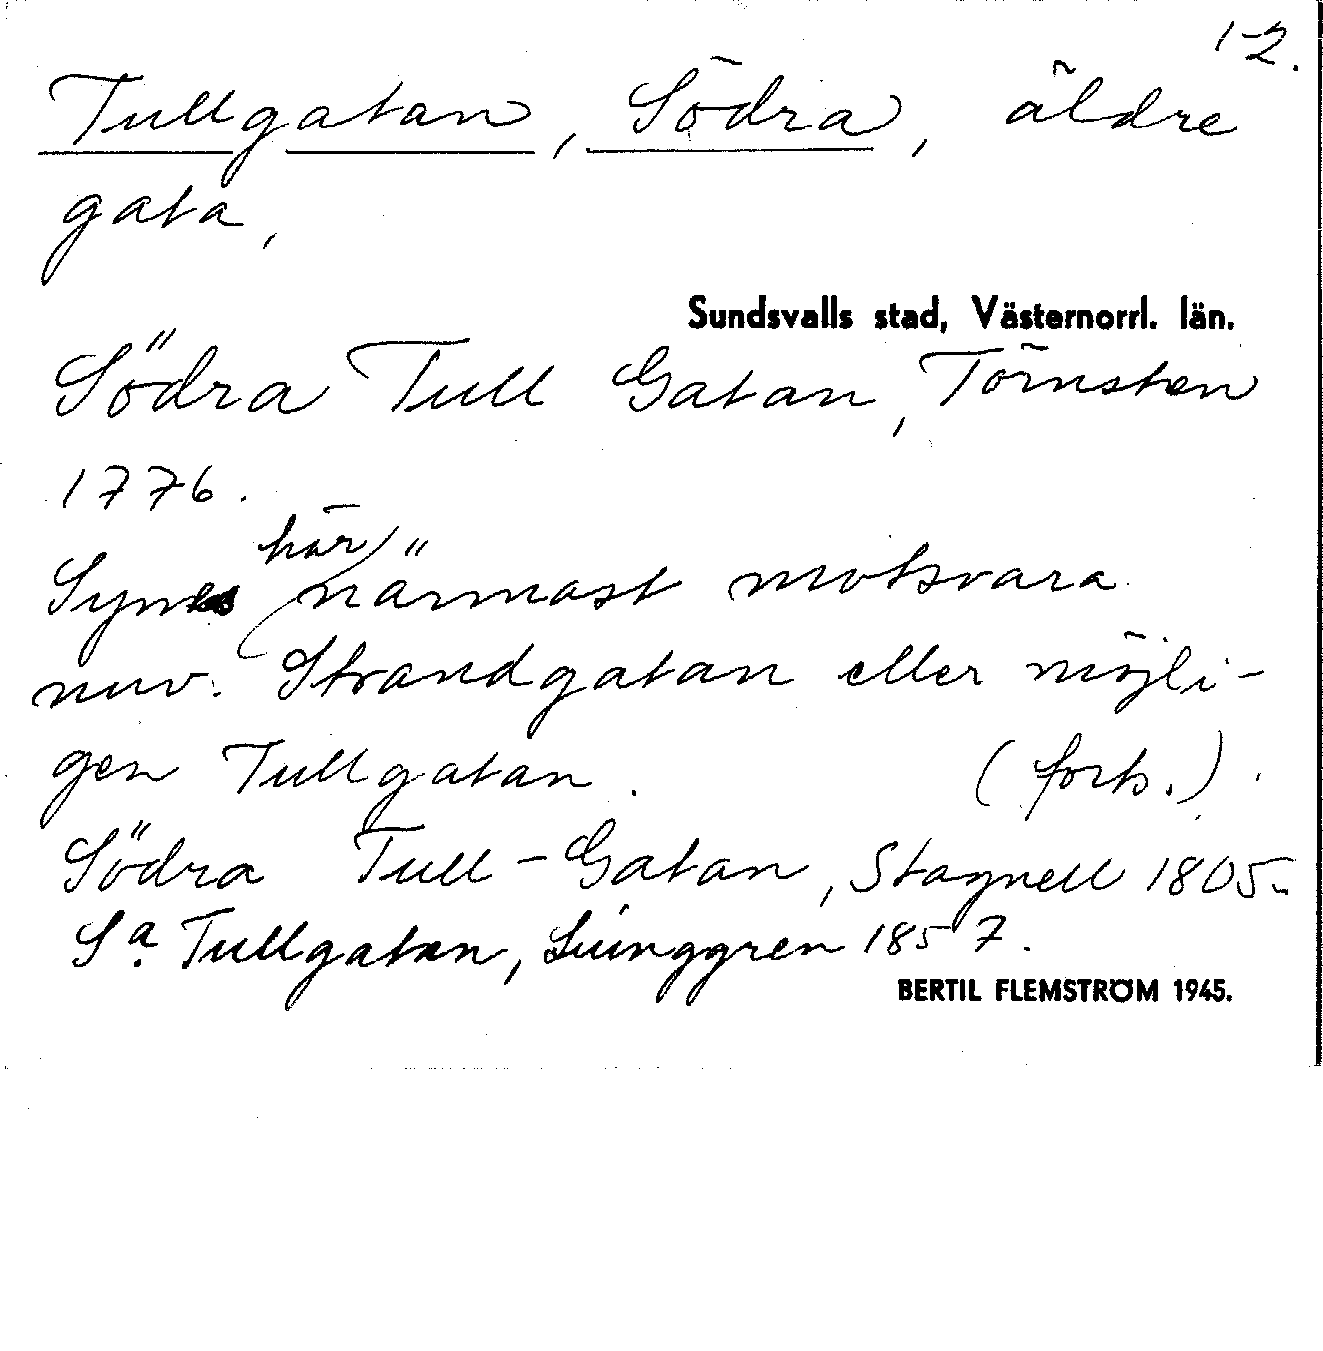 1-2.
Tullgatan, Södra, äldre
gata,
Sundsvalls stad, Västernorrl. län.
Södra Tull Gatan, Törnsten
1776.
här
Synes närmast motsvara
nuv. Strandgatan eller möjli-
gen Tullgatan. (forts.)
Södra Tull-Gatan, Stagnell 1805.
Sa. Tullgatan, Ljunggren 1857.
BERTIL FLEMSTRÖM 1945.